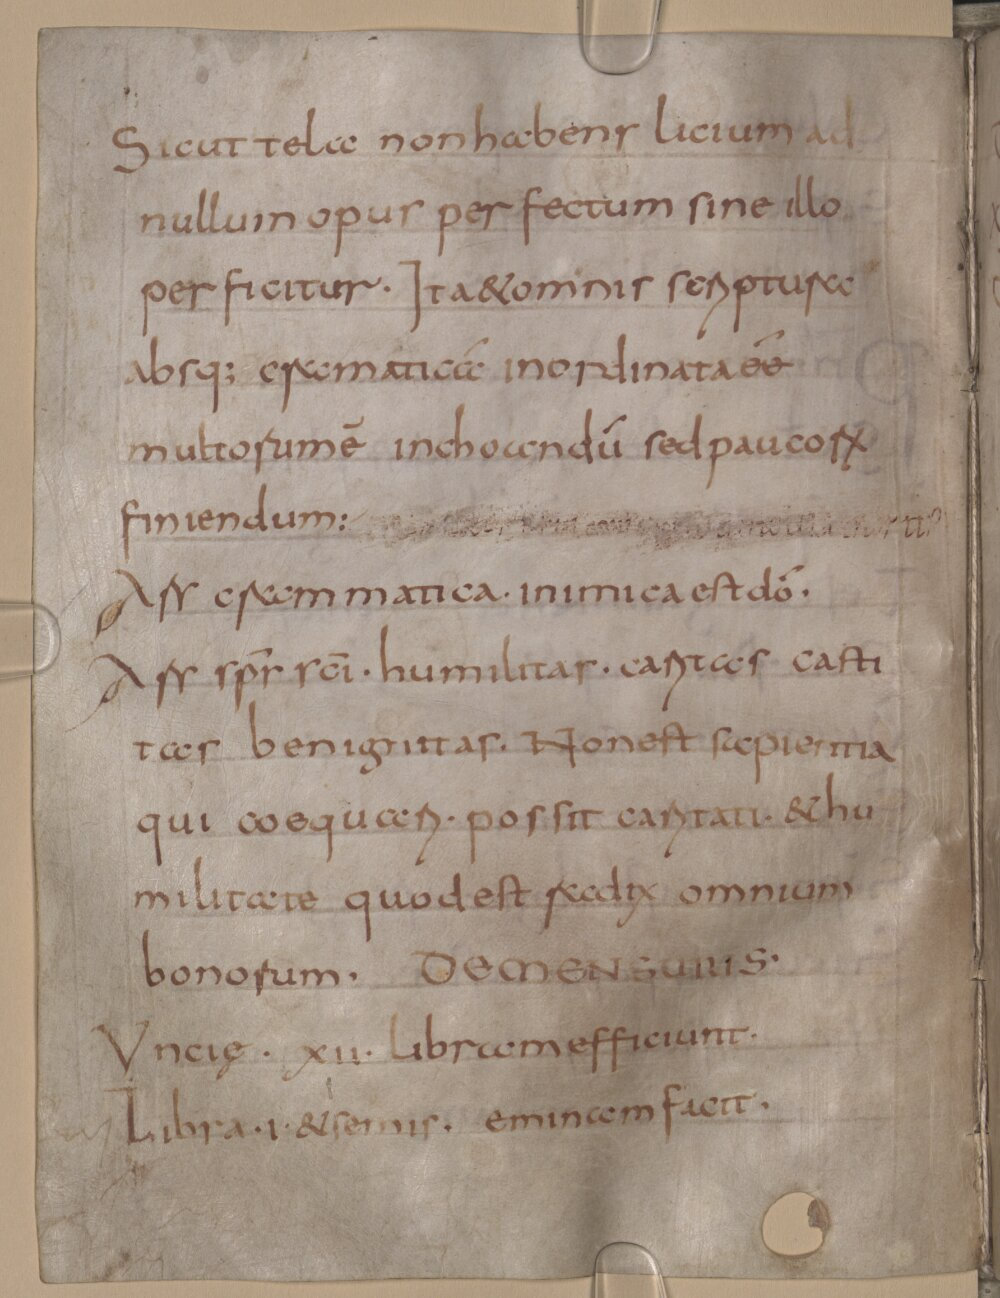 Sicut tela non habens licium ad
nullum opus perfectum sine illo
perficitur. Ita & omnis scriptura
absq; cramatica inordinata éé
multorum ē inchoandū sed paucorꝝ
finiendum:
Ars crammatica. inimica est dō.
Ars sp̄s sc̄i. humilitas. caritas casti
tas benignitas. Non est sapientia
qui coequari. possit caritati. & hu
militate quod est radix omnium
bonorum. DE MENSURIS.
Uncię. xii. libram efficiunt.
Libra. i. & semis. eminam facit.